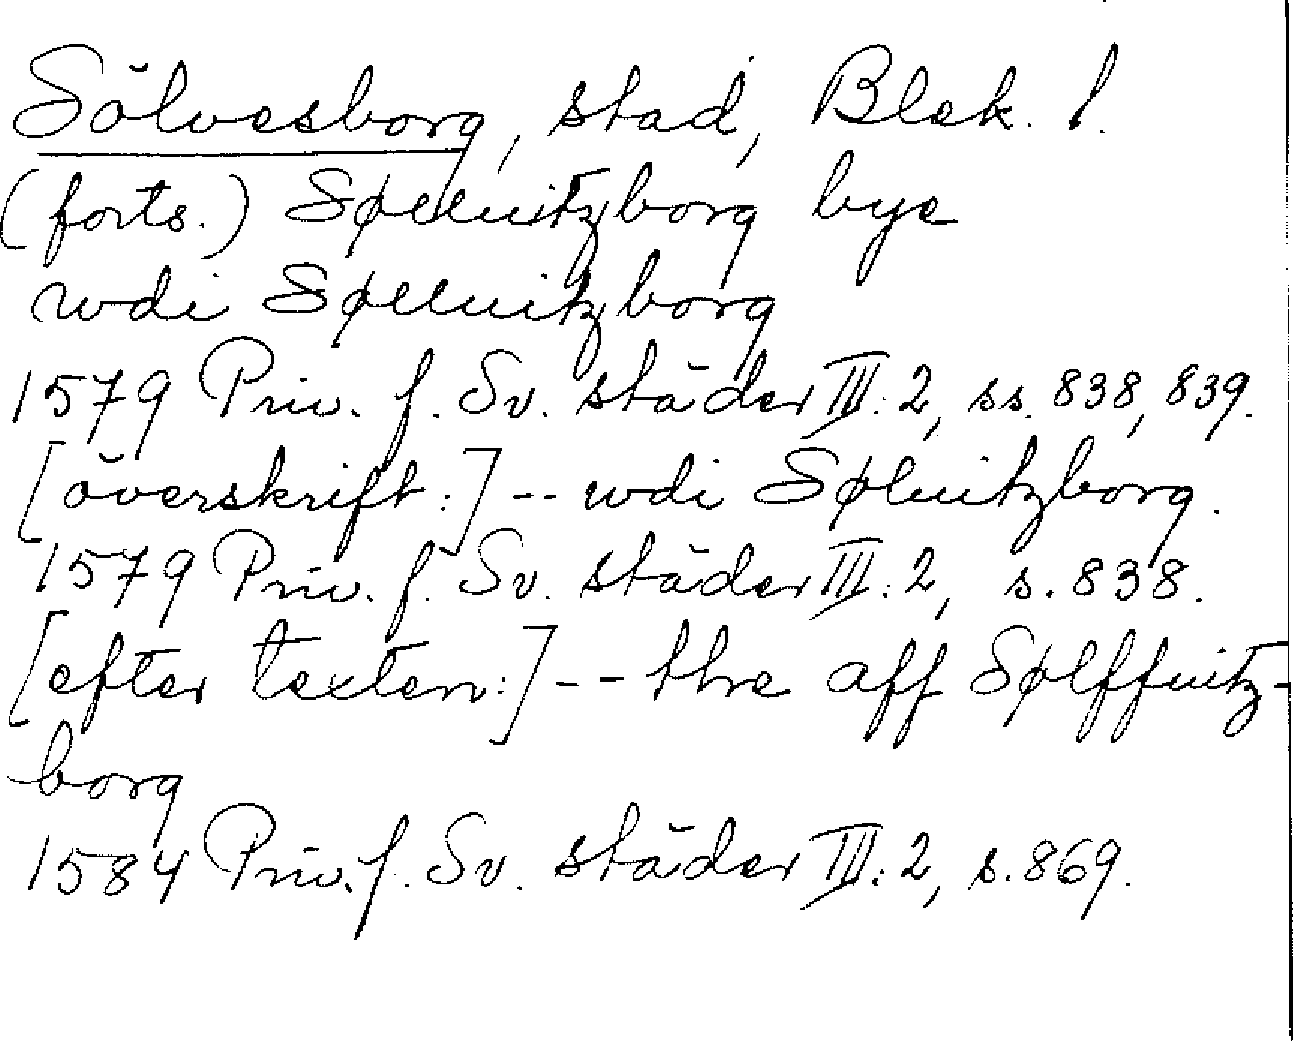 Sölvesborg, stad, Blek. l.
(forts.) Søeluitzborg bye
wdi Søeluitzborg
1579 Priv. f. Sv. städer III:2, ss. 838, 839.
[överskrift:] -- wdi Søluitzborg.
1579 Priv. f. Sv. städer III:2, s. 838.
[efter texten:] -- thre aff Sølffuitz-
borg
1584 Priv. f. Sv. städer III:2, s. 869.